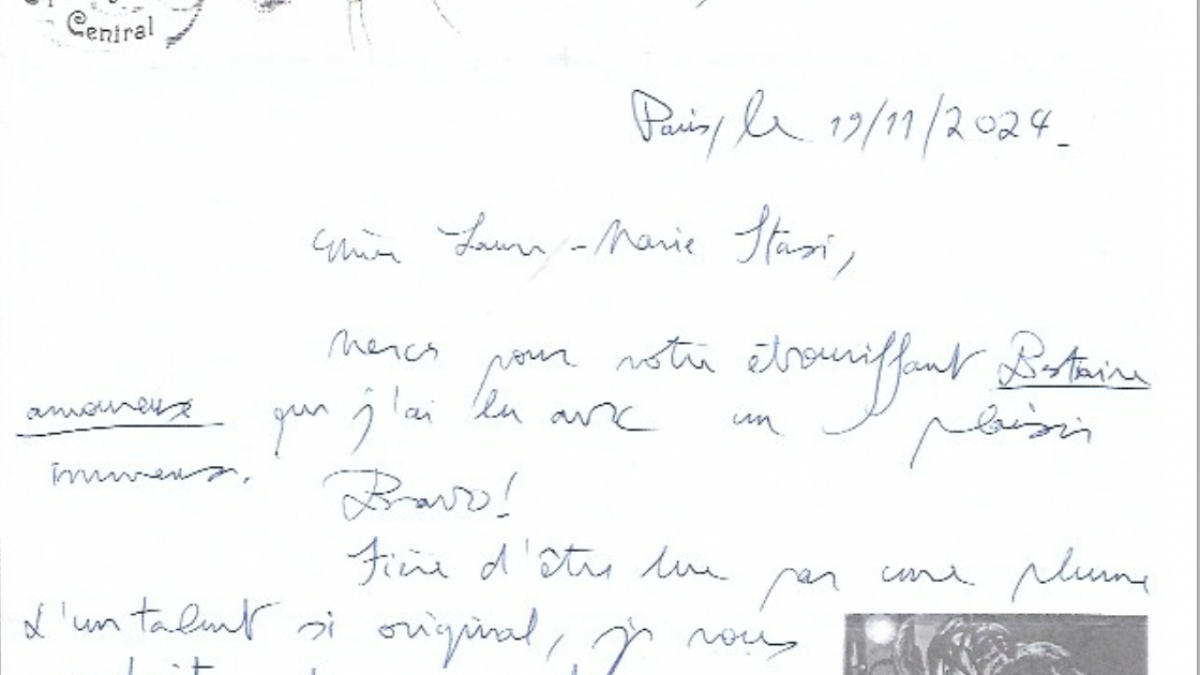 Central
Paris, le 19/11/2024_
Chère Laure-Marie Stasi,
Merci pour votre ébouriffant Bestiaire
amoureux que j'ai lu avec un plaisir
immense.
Bravo!
Fière d'être lue par une plume
d'un talent si original, je vous